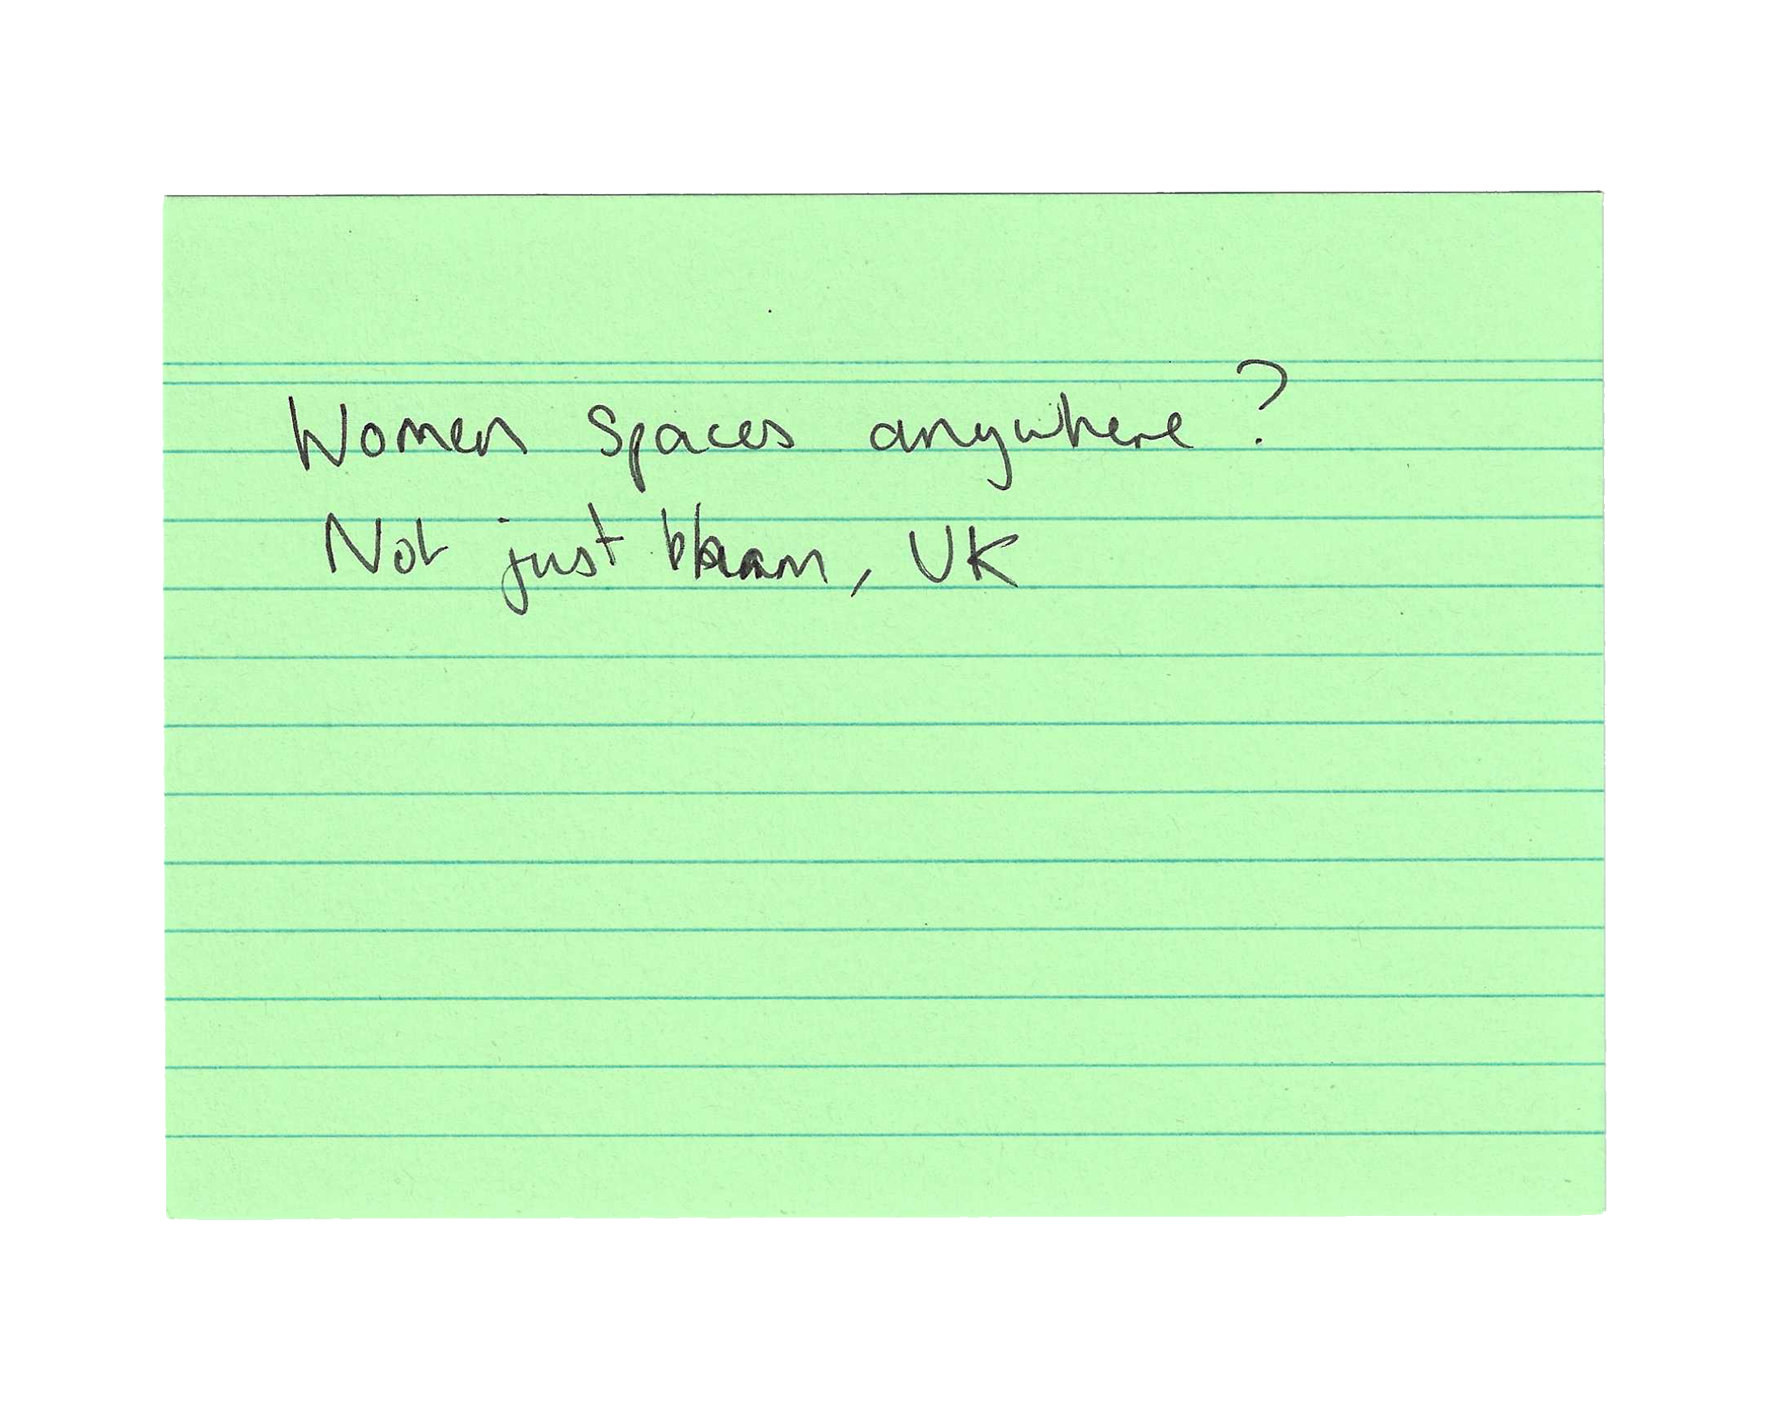 Women spaces anywhere?
Not just bham, UK